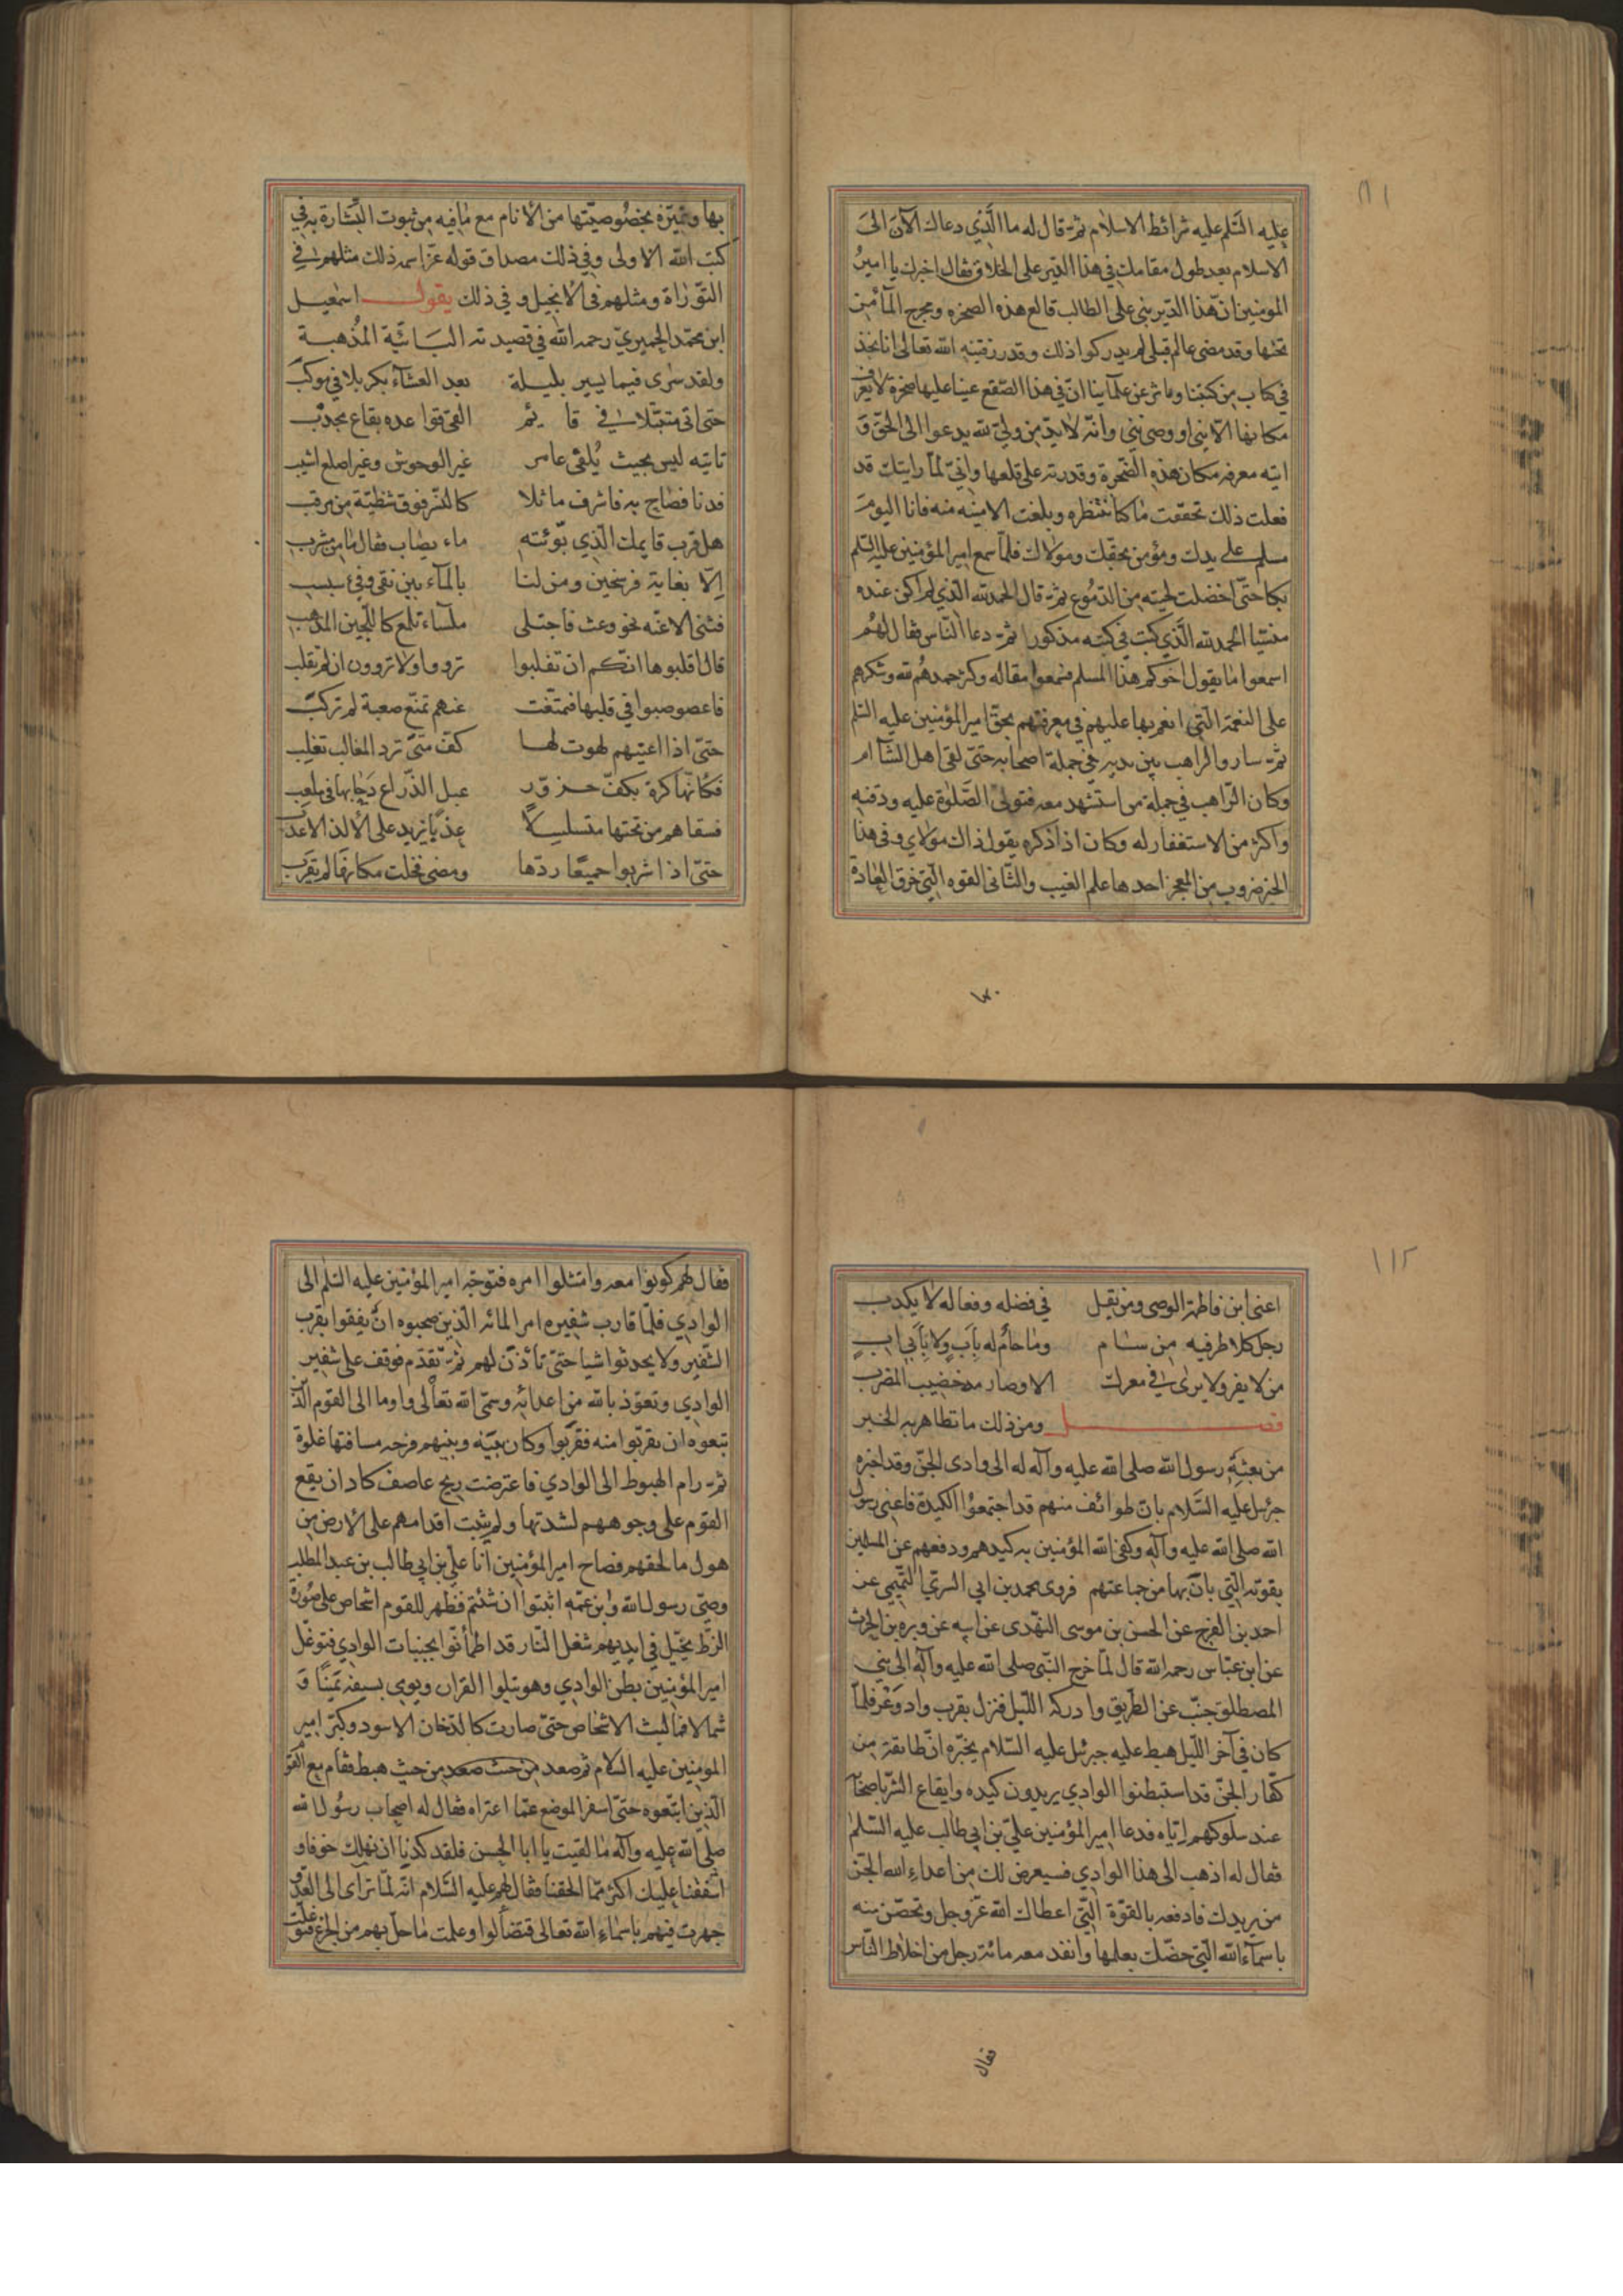 ١١١
عليه السّلم عليه شرائط الاسلام ثمّ قال له ما الّذي دعاك الآن الى
الاسلام بعد طول مقامك في هذا الدّير على الخلاف فقال اخبرك يا امير
المومنين انّ هذا الدّير بنى على الطالب قالع هذه الصخره ومخرج المآء من
تحتها وقد مضى عالم قبلى لم يدركوا ذلك وقد رزقنيه الله تعالى انا نجد
في كتاب من كتبنا وماثر عن علمآئنا انّ في هذا الصّقع عينا عليها صخرة لا يعرف
مكانها الّا نبى او وصى نبى وانّه لا بدّ من ولىّ لله يدعوا الى الحقّ
ايته معرفه مكان هذه الصّخرة وقدرته على قلعها وانّي لمّا رايتك قد
فعلت ذلك تحقّقت ما كنا ننتظره وبلغت الامنيه منه فانا اليوم
مسلم على يدك ومؤمن بحقك ومولاك فلمّا سمع امير المؤمنين عليه السّلم
بكا حتّى اخضلت لحيته من الدّموع ثمّ قال الحمد لله الّذي لم اكن عنده
منسيّا الحمد لله الّذي كنت في كتبه مذكورا ثمّ دعا النّاس فقال لهم
اسمعوا ما يقول اخوكم هذا المسلم فسمعوا مقاله وكثر حمدهم لله وشكرهم
على النعمة الّتي انعم بها عليهم في معرفتهم بحقّ امير المؤمنين عليه السّلم
ثمّ سار والراهب بين يديه في جملة اصحابه حتّى لقى اهل الشآم
وكان الرّاهب في جملة من استشهد معه فتولى الصّلوة عليه ودفنه
واكثر من الاستغفار له وكان اذا ذكره يقول ذاك مولاي وفي هذا
الخبر ضروب من المعجز احدها علم الغيب والثّانى القوه الّتي خرق العادة
بها وتميّزه بخصوصيّتها من الانام مع ما فيه من ثبوت البشارة به في
كتب الله الاولى وفي ذلك مصداق قوله عزّ اسمه ذلك مثلهم في
التّوراة ومثلهم في الانجيل وفي ذلك يقول اسمعيل
ابن محمّد الحميريّ رحمه الله في قصيدته البائيّة المُذهبة
ولقد سرى فيما يسير بليلة بعد العشآء بكربلا في موكب
حتى اتى متبتّلا في قايم القى قواعده بقاع مجدب
تاتيه ليس بحيث يُلقى عامر غير الوحوش وغير اصلع اشيب
فدنا فصاح به فاشرف ماثلا كالنّسر فوق شظيّة من مرقب
هل قرب قايمك الّذي بوّئته ماء يصاب فقال ما من مشرب
الّا بغاية فرسخين ومن لنا بالمآء بين نقى وفي سبسب
فثنى الاعنّه نحو وعث فاجتلى ملسآء تلمع كاللّجين المذهب
قال اقلبوها انّكم ان تقلبوا ترووا ولا تروون ان لم تقلب
فاعصوصبوا في قلبها فتمنّعت عنهم تمنّع صعبة لم تركب
حتّى اذا اعيتهم لهوت لها كفّ متى ترد المغالب تغلب
فكانّها كرة بكفّ حزوّر عبل الذّراع دحا بها في ملعب
فسقاهم من تحتها متسلسلًا عذبا يزيد على الالذ الاعذب
حتّى اذا شربوا جميعًا ردّها ومضى فخلت مكانها لم يقرب
١١٢
اعنى ابن فاطمة الوصى ومن يقل في فضله وفعاله لا يكذب
رجل كلا طرفيه من سام وما حام له باب ولا بابى اب
من لا يفر ولا يرى في معرك الا وصارمه خضيب المضرب
فصل ومن ذلك ما تظاهر به الخبر
من بعثه رسول الله صلى الله عليه وآله له الى وادى الجنّ وقد اخبره
جبرئيل عليه السّلام بان طوائف منهم قد اجتمعوا لكيده فاغنى رسول
الله صلى الله عليه وآله وكفى الله المؤمنين به كيدهم ودفعهم عن المسلمين
بقوته الّتي بان بها من جماعتهم فروى محمد بن ابى السرىّ التّميمي عن
احمد بن الفرج عن الحسن بن موسى النهدى عن ابيه عن وبره بن الحرث
عن ابن عبّاس رحمه الله قال لمّا خرج النّبى صلى الله عليه وآله الى بنى
المصطلق جنّب عن الطّريق وادركه اللّيل فنزل بقرب واد وعر فلمّا
كان في آخر اللّيل هبط عليه جبرئيل عليه السّلام يخبّره انّ طائفة من
كفّار الجنّ قد استبطنوا الوادي يريدون كيده وايقاع الشرّ باصحابه
عند سلوكهم ايّاه فدعا امير المؤمنين علىّ بن ابى طالب عليه السّلم
فقال له اذهب الى هذا الوادي فسيعرض لك من اعداء الله الجنّ
من يريدك فادفعه بالقوّة الّتي اعطاك الله عزّ وجل وتحصّن منه
باسمآء الله الّتي خصّك بعلمها وانفذ معه مائة رجل من اخلاط النّاس
فقال
فقال لهم كونوا معه وامتثلوا امره فتوجّه امير المؤمنين عليه السّلم الى
الوادي فلمّا قارب شفيره امر المائه الّذين صحبوه ان يقفوا بقرب
الشّفير ولا يحدثوا شيا حتّى تأذن لهم ثمّ تقدّم فوقف على شفير
الوادي وتعوّذ بالله من اعدائه وسمّى الله تعالى واوما الى القوم الّذ
تبعوه ان يقربوا منه فقربوا وكان بينه وبينهم فرجه مسافتها غلوة
ثمّ رام الهبوط الى الوادي فاعترضت ريح عاصف كاد ان يقع
القوم على وجوههم لشدتها ولم يثبت اقدامهم على الارض من
هول ما لحقهم فصاح امير المؤمنين انا علىّ بن ابى طالب بن عبد المطلب
وصىّ رسول الله وابن عمّه اثبتوا ان شئتم فظهر للقوم اشخاص على صورة
الزّط يخيّل في ايديهم شعل النّار قد اطمأنّوا بجنبات الوادي فتوغّل
امير المؤمنين بطن الوادي وهو يتلوا القران ويومى بسيفه يمينًا و
شمالا فما لبث الاشخاص حتّى صارت كالدّخان الاسود وكبّر امير
المومنين عليه السلام ثم صعد من حيث صعد من حيث هبط فقام مع القو
الّذين اتبعوه حتّى اسفر الموضع عمّا اعتراه فقال له اصحاب رسول الله
صلى الله عليه وآله ما لقيت يا ابا الحسن فلقد كدنا ان نهلك خوفا و
اشفقنا عليك اكثر ممّا لحقنا فقال لهم عليه السّلام انّه لمّا ترآى الى العدّو
جهرت فيهم باسماء الله تعالى فتضألوا وعلمت ما حلّ بهم من الجزع فتوغلت